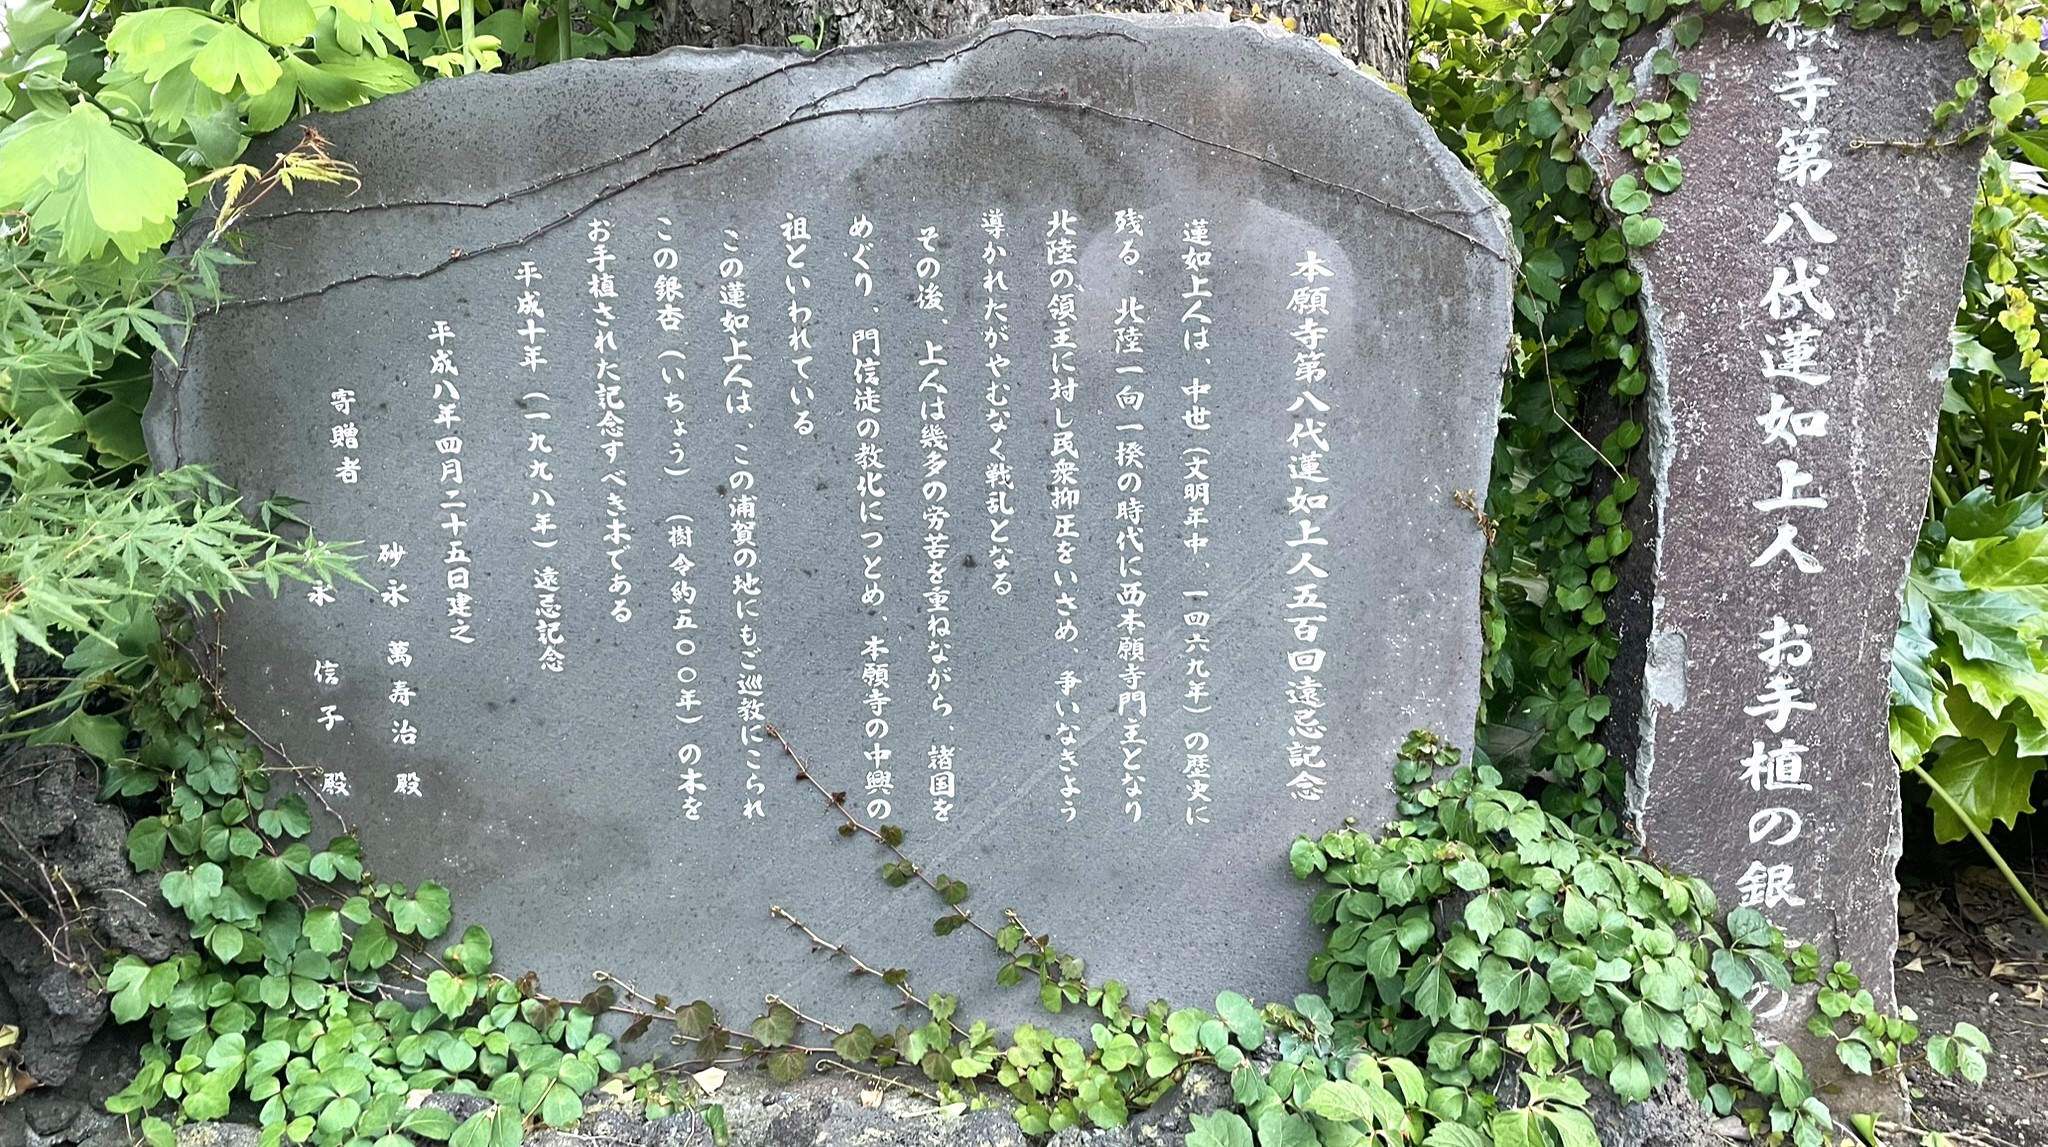 寺第八代蓮如上人 お手植の銀
本願寺第八代蓮如上人五百回遠忌記念
蓮如上人は、中世(文明年中、一四六九年)の歴史に
残る、北陸一向一揆の時代に西本願寺門主となり
北陸の領主に対し民衆抑圧をいさめ、争いなきよう
導かれたがやむなく戦乱となる
その後、上人は幾多の労苦を重ねながら、諸国を
めぐり、門信徒の教化につとめ、本願寺の中興の
祖といわれている
この蓮如上人は、この浦賀の地にもご巡教にこられ
この銀杏(いちょう)(樹令約五〇〇年)の木を
お手植された記念すべき木である
平成十年(一九九八年)遠忌記念
平成八年四月二十五日建之
寄贈者
砂永 萬寿治 殿
永 信子 殿